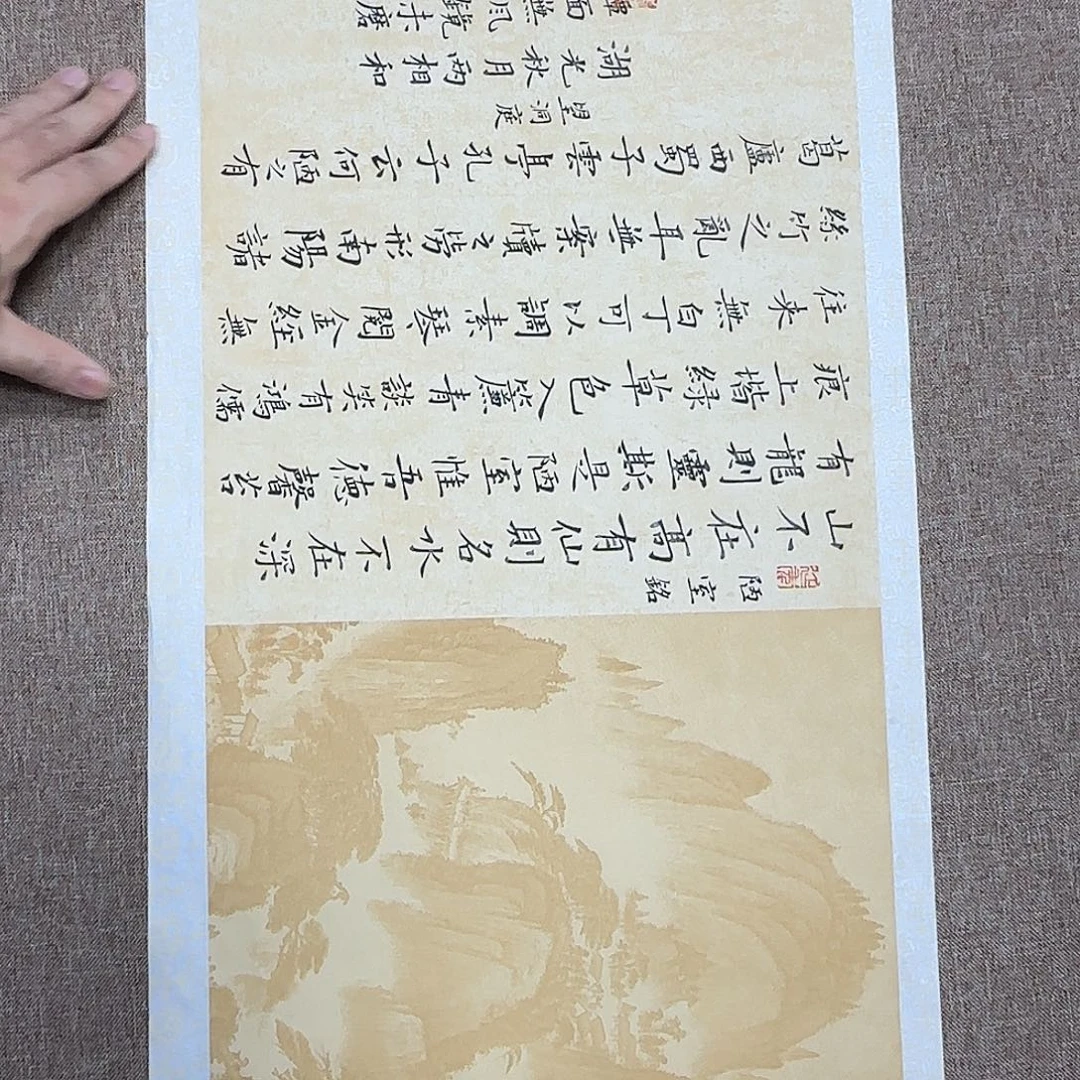 陋室銘
山不在高有仙則名水不在深
有龍則靈斯是陋室惟吾德馨苔
痕上堦緑草色入簾青談笑有鴻儒
往来無白丁可以調素琴閲金經無
絲竹之亂耳無案牘之勞形南陽諸
葛廬西蜀子雲亭孔子云何陋之有
望洞庭
湖光秋月兩相和
潭面無風鏡未磨